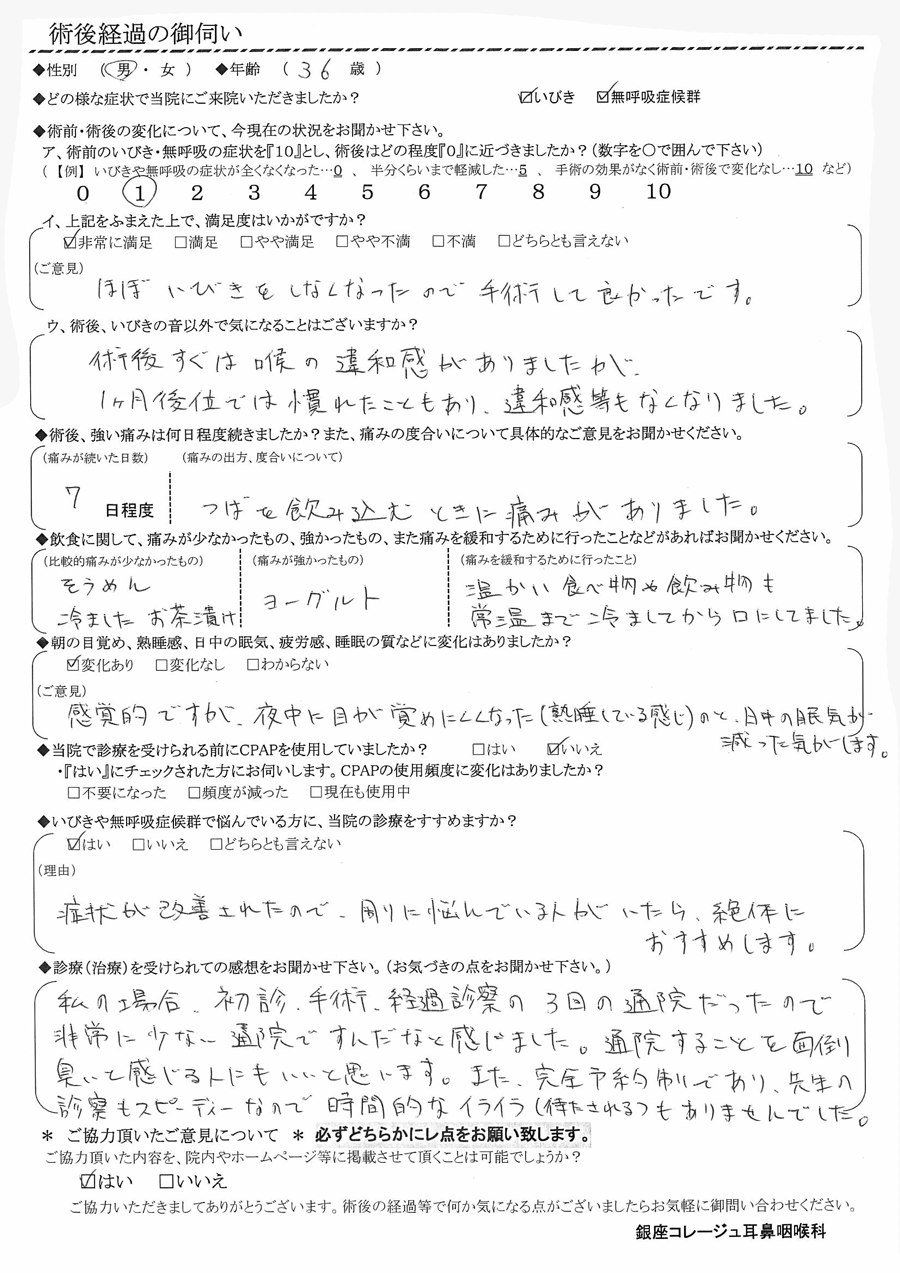 術後経過の御伺い
◆性別 (男・女) ◆年齢 (36歳)
◆どの様な症状で当院にご来院いただきましたか? ☑いびき ☑無呼吸症候群
◆術前・術後の変化について、今現在の状況をお聞かせ下さい。
ア、術前のいびき・無呼吸の症状を『10』とし、術後はどの程度『0』に近づきましたか?(数字を○で囲んで下さい)
(【例】いびきや無呼吸の症状が全くなくなった…0 、 半分くらいまで軽減した…5 、 手術の効果がなく術前・術後で変化なし…10 など)
0 1 2 3 4 5 6 7 8 9 10
イ、上記をふまえた上で、満足度はいかがですか?
☑非常に満足 □満足 □やや満足 □やや不満 □不満 □どちらとも言えない
(ご意見)
ほぼいびきをしなくなったので手術して良かったです。
ウ、術後、いびきの音以外で気になることはございますか?
術後すぐは喉の違和感がありましたが、
1ヶ月後位では慣れたこともあり、違和感等もなくなりました。
◆術後、強い痛みは何日程度続きましたか?また、痛みの度合いについて具体的なご意見をお聞かせください。
(痛みが続いた日数) (痛みの出方、度合いについて)
7 日程度 つばを飲み込むときに痛みがありました。
◆飲食に関して、痛みが少なかったもの、強かったもの、また痛みを緩和するために行ったことなどがあればお聞かせください。
(比較的痛みが少なかったもの) (痛みが強かったもの) (痛みを緩和するために行ったこと)
そうめん
冷ました お茶漬け
ヨーグルト
温かい食べ物や飲み物も
常温まで冷ましてから口にしてました。
◆朝の目覚め、熟睡感、日中の眠気、疲労感、睡眠の質などに変化はありましたか?
☑変化あり □変化なし □わからない
(ご意見)
感覚的ですが、夜中に目が覚めにくくなった(熟睡している感じ)のと、日中の眠気が
減った気がします。
◆当院で診療を受けられる前にCPAPを使用していましたか? □はい ☑いいえ
・『はい』にチェックされた方にお伺いします。CPAPの使用頻度に変化はありましたか?
□不要になった □頻度が減った □現在も使用中
◆いびきや無呼吸症候群で悩んでいる方に、当院の診療をすすめますか?
☑はい □いいえ □どちらとも言えない
(理由)
症状が改善されたので、周りに悩んでいる人がいたら、絶体に
おすすめします。
◆診療(治療)を受けられての感想をお聞かせ下さい。(お気づきの点をお聞かせください。)
私の場合、初診、手術、経過診察の3回の通院だったので
非常に少ない通院ですんだなと感じました。通院することを面倒
臭いと感じる人にもいいと思います。また、完全予約制であり、先生の
診察もスピーディーなので時間的なイライラ(待たされる)もありませんでした。
＊ ご協力頂いたご意見について ＊ 必ずどちらかにレ点をお願い致します。
ご協力頂いた内容を、院内やホームページ等に掲載させて頂くことは可能でしょうか?
☑はい □いいえ
ご協力いただきましてありがとうございます。術後の経過等で何か気になる点がございましたらお気軽に御問い合わせください。
銀座コレージュ耳鼻咽喉科